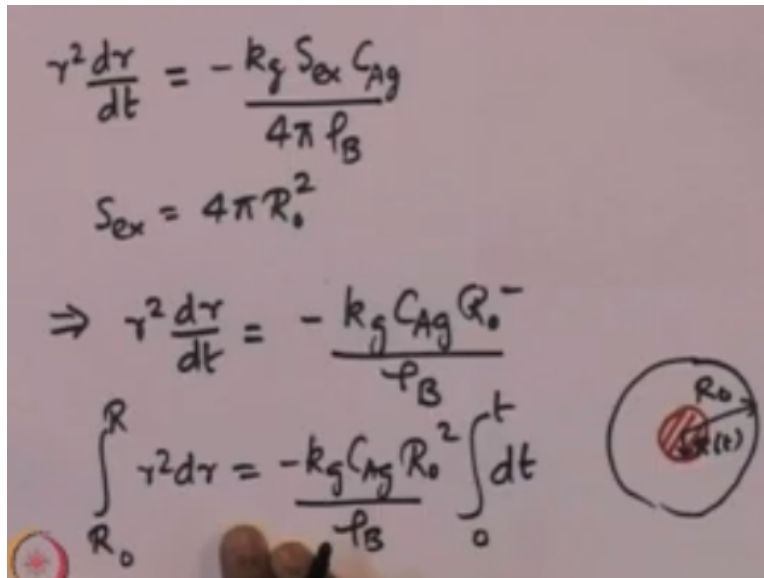 r² dr/dt = - k_g S_ex C_Ag / 4π ρ_B
S_ex = 4π R₀²
⇒ r² dr/dt = - k_g C_Ag R₀⁻ / ρ_B
∫_{R₀}^{R} r² dr = - k_g C_Ag R₀² / ρ_B ∫_{0}^{t} dt
R₀
r(t)